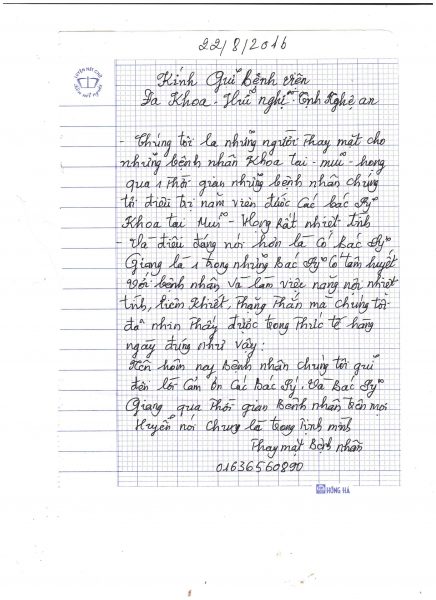 22/8/2016
LUYỆN NÉT CHỮ
RÈN NẾT NGƯỜI
Kính Gửi Bệnh viện
Đa Khoa - Hữu nghị - Tỉnh Nghệ an
- Chúng tôi là những người Thay mặt cho
những bệnh nhân Khoa tai - mũi - họng
qua 1 thời gian những bệnh nhân chúng
tôi điều trị nằm viên được Các bác Sỹ
Khoa tai Mũi - Họng Rất nhiệt tình
- Và điều đáng nói hơn là Cô Bác Sỹ
Giang là 1 trong những Bác Sỹ Có tâm huyết
Với bệnh nhân và làm việc năng nổi nhiệt
tình, liêm Khiết, Thẳng Thắn mà chúng tôi
đã nhìn Thấy được trong Thức tế hàng
ngày đúng như vậy:
Nên hôm nay Bệnh nhân chúng tôi gửi
đến lời Cảm ơn Các Bác Sỹ. Và Bác Sỹ
Giang qua Thời gian Bệnh nhân trên mọi
Huyện nói Chung là trong Tỉnh mình
Thay mặt Bệnh nhân
01636560890
HỒNG HÀ